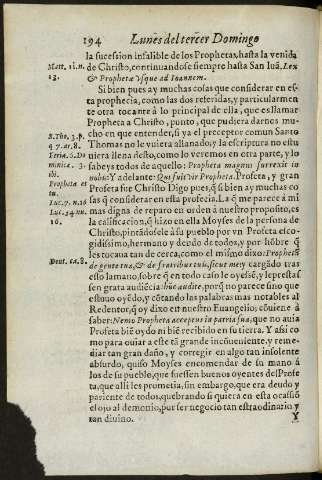 194 Lunes del tercer Domingo
la sucession infalible de los Prophetas, hasta la venida
Matt. 11. n.
13.
de Christo, continuandose siempre hasta San Iuã, Lex
& Prophetæ vsque ad Ioannem.
Si bien pues ay muchas cosas que considerar en es-
ta prophecia, como las dos referidas, y particularmente
otra tocante à lo principal de ella, que es llamar
Propheta a Christo, punto, que pudiera darnes mu-
S. Tho. 3. p.
q 7. ar. 8.
Feria. 6. Do
minica. 3.
ibi.
Propheta es
tu.
Luc. 7. n. 16
Luc. 24. nu.
16.
cho en que entender, si ya el preceptor comun Santo
Thomas no le vuiera allanado; y la escriptura no estu
uiera llena desto, como lo veremos en otra parte, que si
bien sabeys todos de aquello: Propheta magnus surrexit in
nobis: Y adelante: Qui fuit vir Propheta. Profeta, y gran
Profeta fue Christo Digo pues, q̃ si bien ay muchas co
sas q̃ considerar en esta profecia. La q̃ me parece à mi
mas digna de reparo en orden à nuestro proposito, es
la calificacion, q̃ hizo en ella Moyses de la persona de
Christo, pintãdosele à su pueblo por vn Profeta esco-
gidissimo, hermano y dendo de todos, y por hõbre q̃
Deut. ca. 8.
les tocaua tan de cerca, como el mismo dixo: Prophetã
de gente tua, & de fratribus tuis, sicut me; y cargãdo tras
esto la mano, sobre q̃ en todo caso le oyessẽ, y le prestas
sen grata audiẽcia: hũc audite. porq̃ no parece sino que
estuuo oyẽdo, y cõtando las palabras mas notables al
Redentor, q̃ oy dixo en nuestro Euangelio; cõuiene à
saber: Nemo Propheta acceptus in patria sua, que no auia
Profeta biẽ oydo ni biẽ recibido en su tierra. Y asi co
mo para ouiar a este tã grande incõueniente, y reme-
diar tan gran daño, y corregir en algo tan insolente
absurdo, quiso Moyses encomendar de su mano à
los de su pueblo, que fuessen buenos oyentes del Profe
ta, que alli les prometia, sin embargo, que era deudo y
pariente de todos, quebrando si quiera en esta ocasiõ
el ojo al demonio, pur ser negocio tan extraordinario y
tan diuino. Y